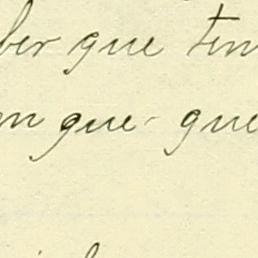 ber que ten
en que - que